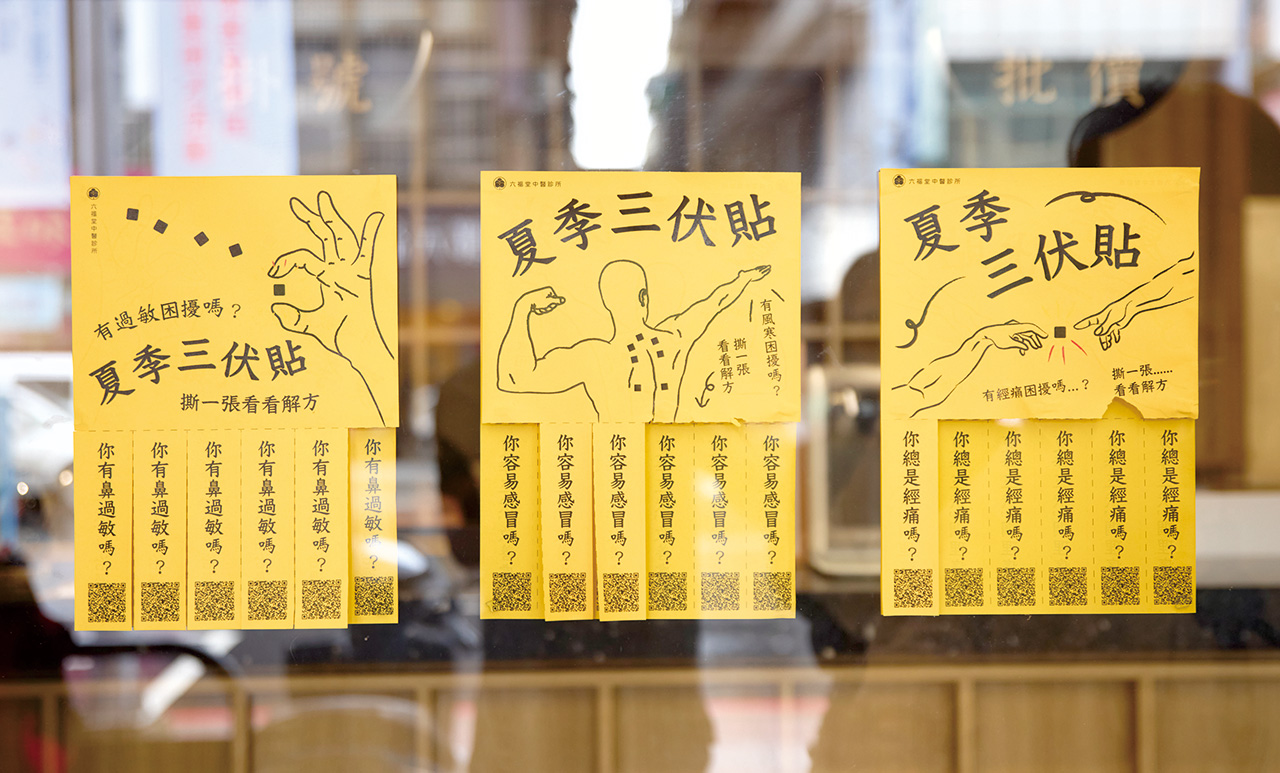 號
批價
六福堂中醫診所
六福堂中醫診所
有過敏困擾嗎？
夏季三伏貼
撕一張看看解方
你有鼻過敏嗎？
你有鼻過敏嗎？
你有鼻過敏嗎？
你有鼻過敏嗎？
你有鼻過敏嗎？
你有鼻過敏嗎？
六福堂中醫診所
夏季三伏貼
有風寒困擾嗎？
撕一張
看看解方
你容易感冒嗎？
你容易感冒嗎？
你容易感冒嗎？
你容易感冒嗎？
你容易感冒嗎？
你容易感冒嗎？
六福堂中醫診所
夏季
三伏貼
有經痛困擾嗎…？
撕一張……
看看解方
你總是經痛嗎？
你總是經痛嗎？
你總是經痛嗎？
你總是經痛嗎？
你總是經痛嗎？
你總是經痛嗎？